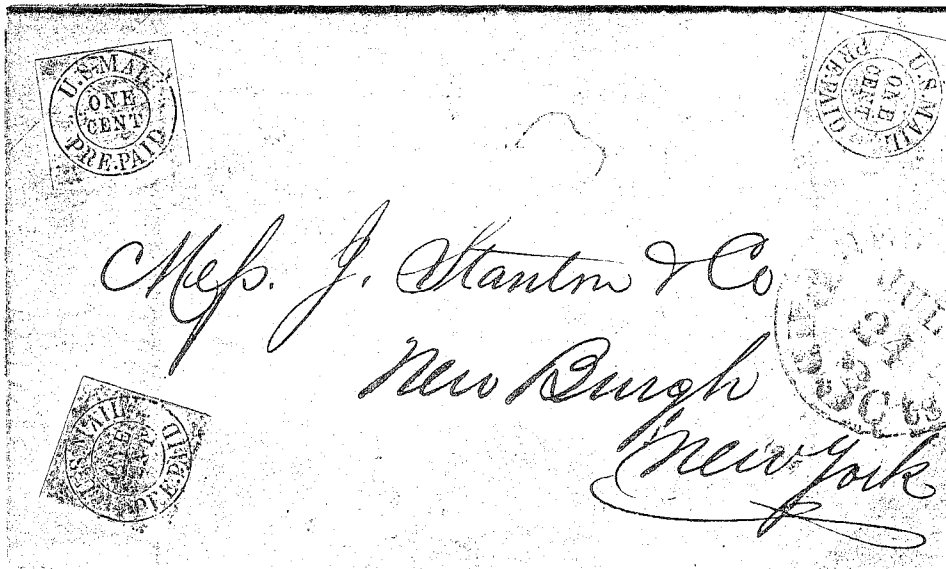 U.S. MAIL
ONE
CENT
PRE-PAID
U.S. MAIL
ONE
CENT
PRE-PAID
Mess. J. Stanton & Co
New Burgh
New York
JUL
24
3C
U.S. MAIL
ONE
CENT
PRE-PAID